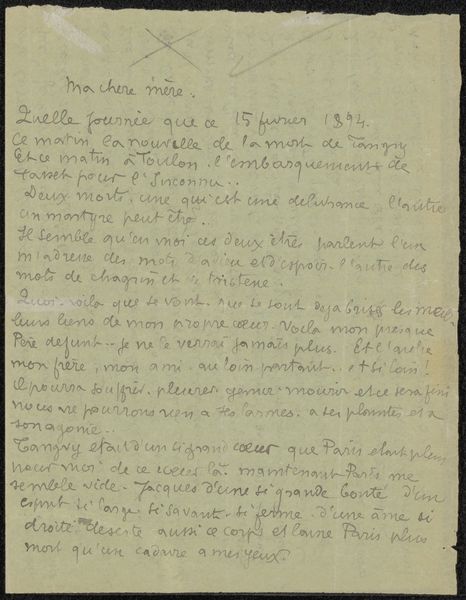 Ma chere mère.
Quelle journée que ce 15 fevrier 1894.
Ce matin la nouvelle de la mort de Tanguy
Et ce matin à Toulon. l'embarquement de
Tasset pour l'Inconnu..
Deux morts. une qui est une delivrance l'autre
un martyre peut être.
Il semble qu'en moi ces deux êtres parlent l'un
m'adresse des mots d'adieu et d'espoir. l'autre des
mots de chagrin et de tristesse.
Quoi. voila que se vont. que se sont deja brisés les meil-
leurs liens de mon propre cœur. Voila mon presque
Père defunt.. Je ne le verrai jamais plus. Et l'autre
mon frère, mon ami. au loin partant... et si loin!
il pourra souffrir. pleurer. gémir. mourir et ce sera fini
nous ne pourrons rien a ses larmes. a ses plaintes et a
son agonie..
Tanguy etait d'un si grand cœur que Paris etait plein
pour moi de ce cœur là. maintenant Paris me
semble vide. Jacques d'une si grande bonté d'un
esprit si large. si savant. si ferme. d'une âme si
droite deserte aussi ce corps et laisse Paris plus
mort qu'un cadavre a mes yeux.